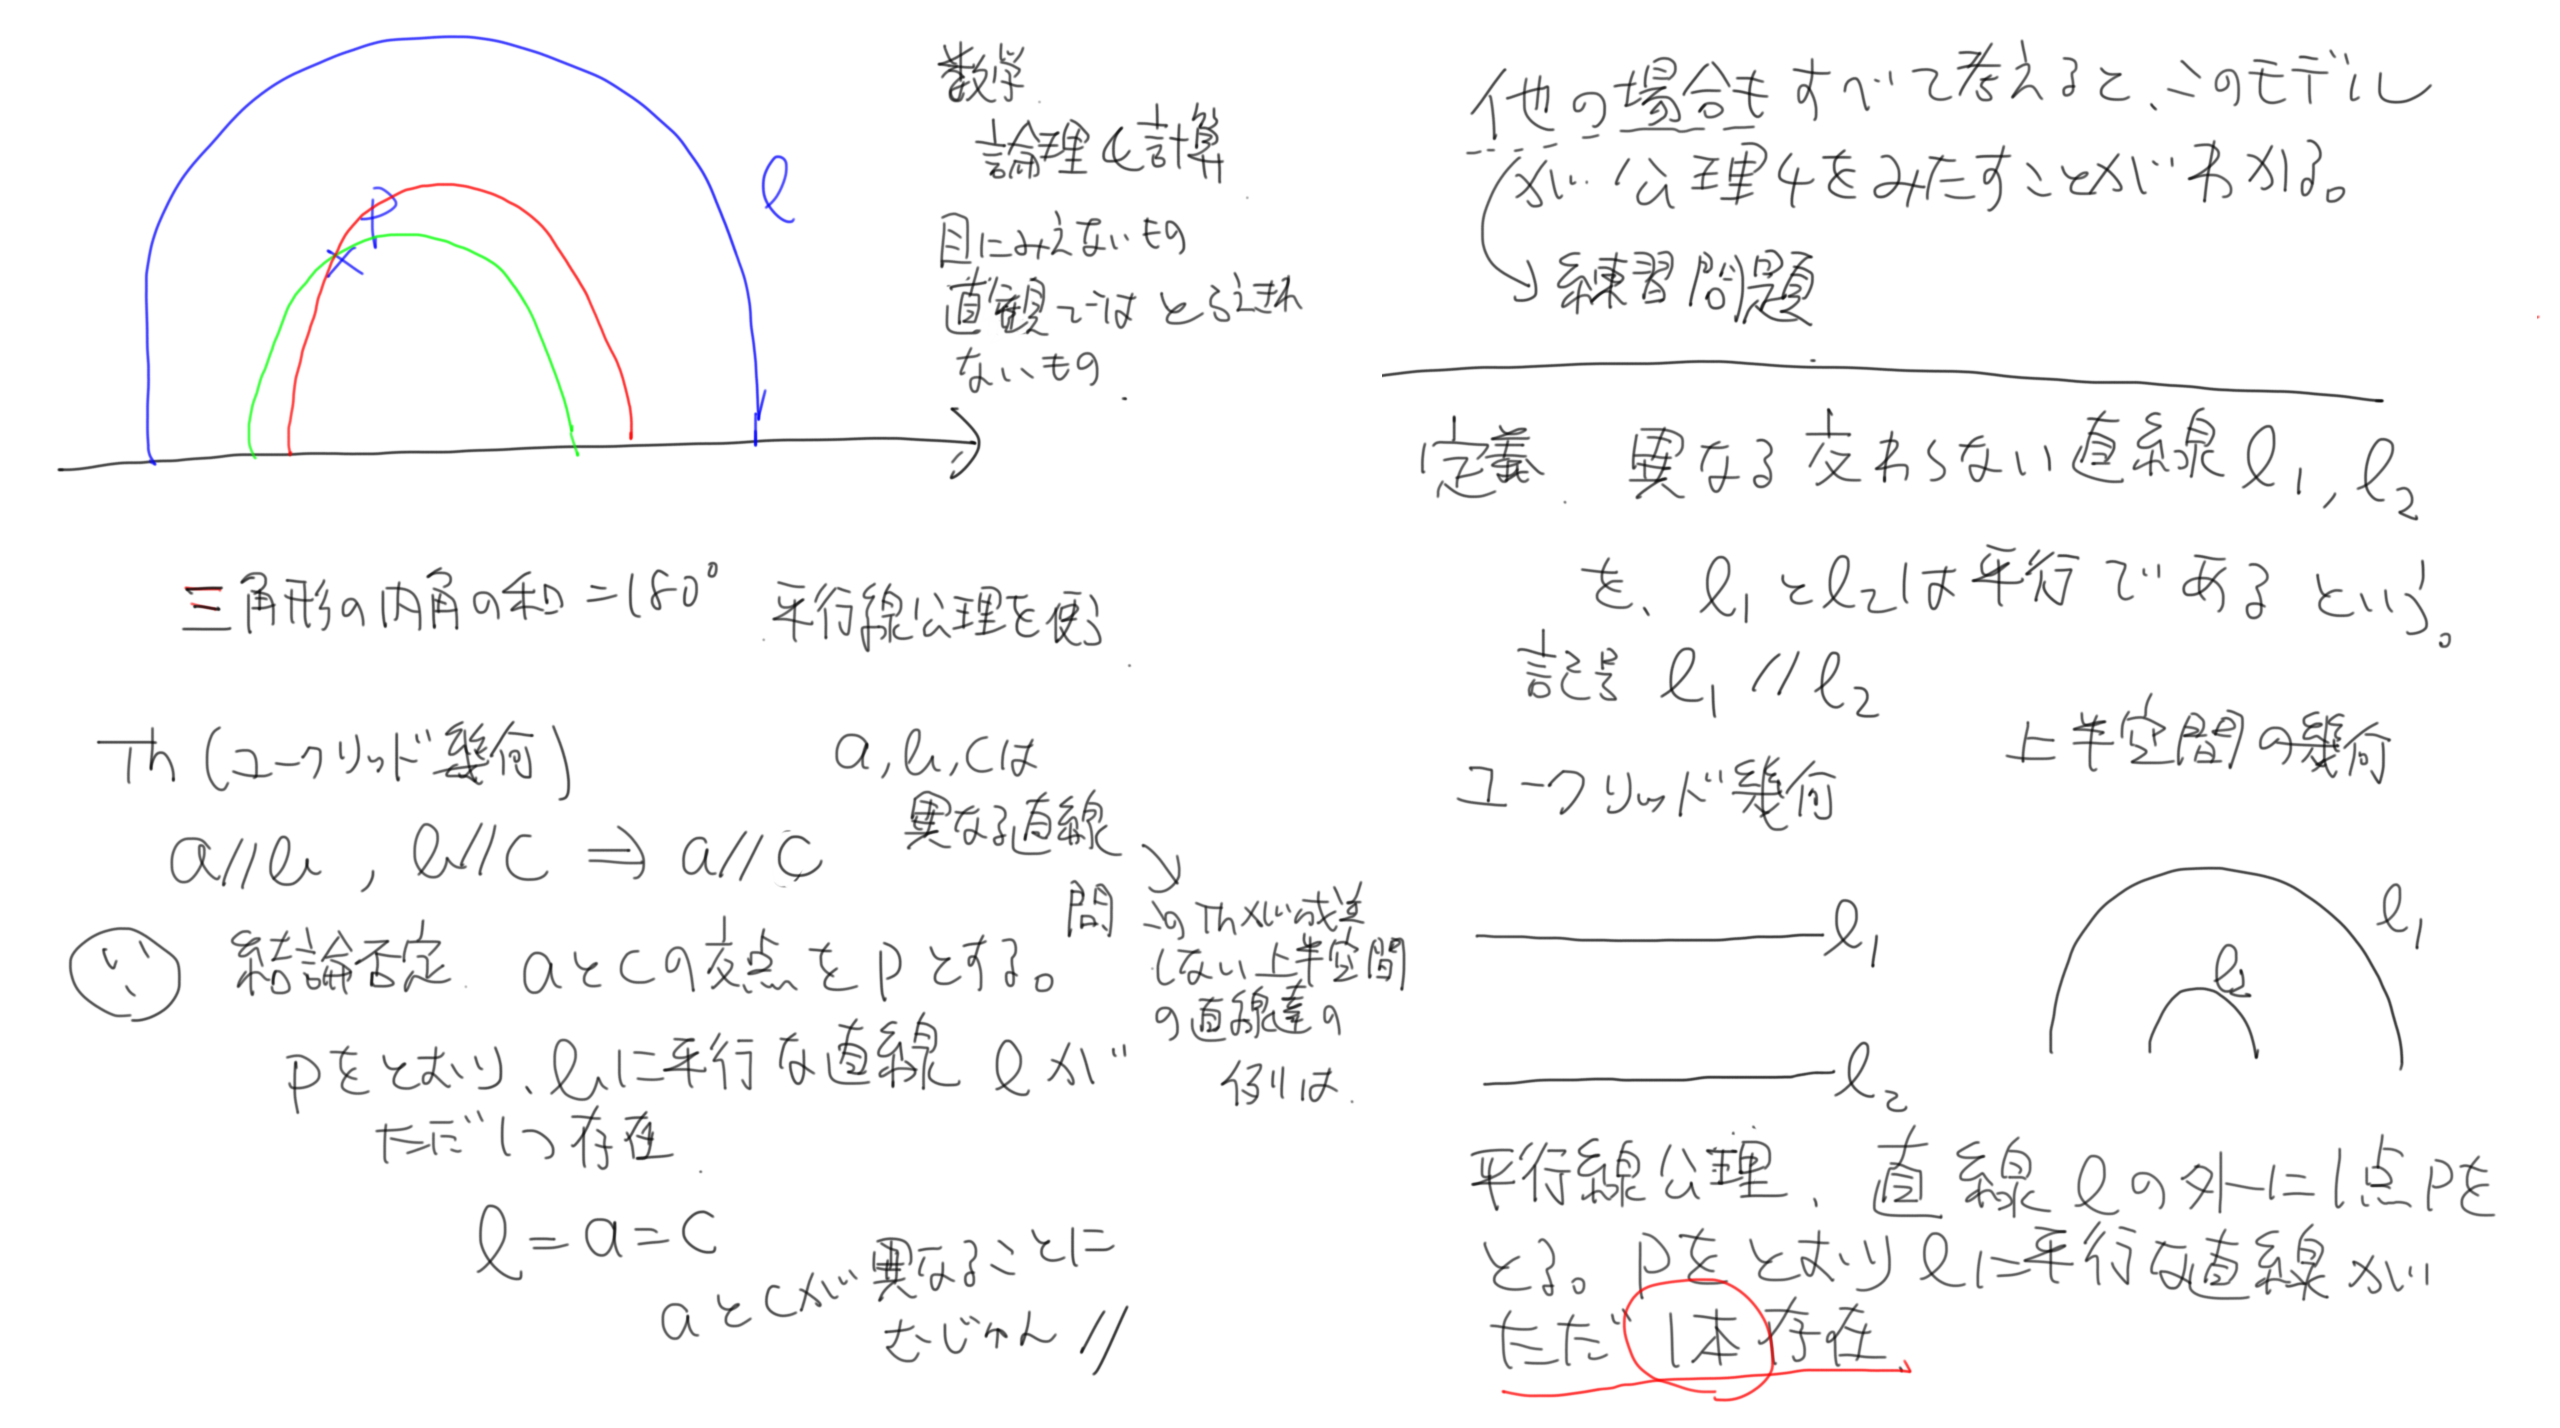 l
P
数学
論理と計算
目にみえないもの
直観ではとらえきれ
ないもの
三角形の内角の和=180° 平行線公理を使う
Th (ユークリッド幾何)
a, b, cは
異なる直線
a//b, b//c ⇒ a//c
問 このThが成立
しない上半空間
の直線達の
例は
∵ 結論否定 aとcの交点をPとする。
Pをとおり、bに平行な直線 lが
ただ1つ存在
l=a=c
aとcが異なることに
むじゅん //
他の場合もすべて考えると、このモデル
が公理4をみたすことがわかる。
練習問題
定義 異なる交わらない直線l₁, l₂
を、l₁とl₂は平行であるという。
記号 l₁ // l₂
ユークリッド幾何
上半空間の幾何
l₁
l₂
l₁
l₂
平行線公理、直線lの外に1点Pを
とる。Pをとおりlに平行な直線が
ただ1本存在